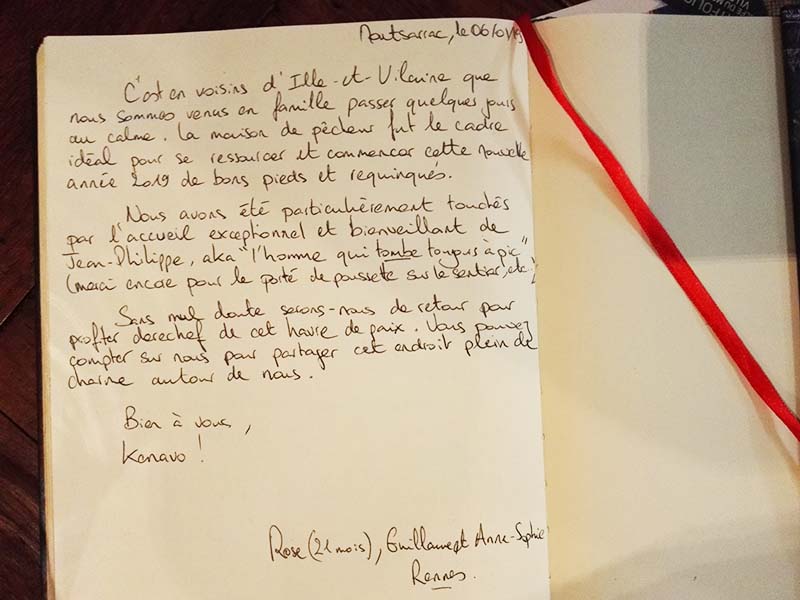 FOLIO
Montsarrac, le 06/01/19
C'est en voisins d'Ille-et-Vilaine que
nous sommes venus en famille passer quelques jours
au calme. La maison de pêcheur fut le cadre
idéal pour se ressourcer et commencer cette nouvelle
année 2019 de bons pieds et requinqués.
Nous avons été particulièrement touchés
par l'accueil exceptionnel et bienveillant de
Jean-Philippe, aka "l'homme qui tombe toujours à pic"
(merci encore pour le porté de poussette sur le sentier, etc.)
Sans nul doute serons-nous de retour pour
profiter derechef de cet havre de paix. Vous pouvez
compter sur nous pour partager cet endroit plein de
charme autour de nous.
Bien à vous,
Kenavo !
Rose (21 mois), Guillaume et Anne-Sophie
Rennes.